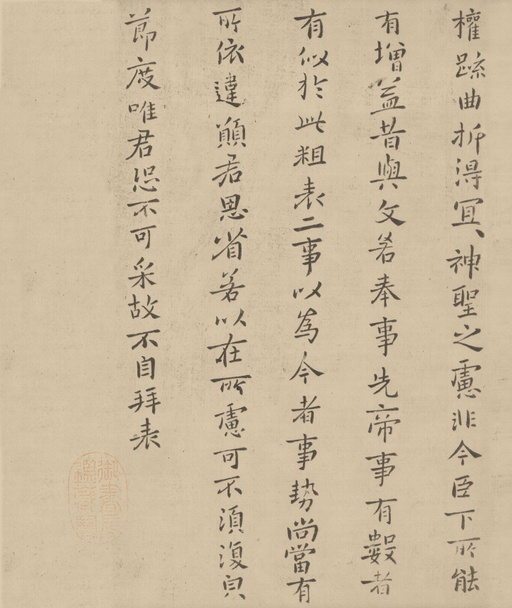 權疏曲折得冝神聖之慮非今臣下所能
有增益昔與文若奉事先帝事有數者
有似於此粗表二事以為今者事勢尚當有
所依違願君思省若以在所慮可不須復皃
節度唯君恐不可采故不自拜表